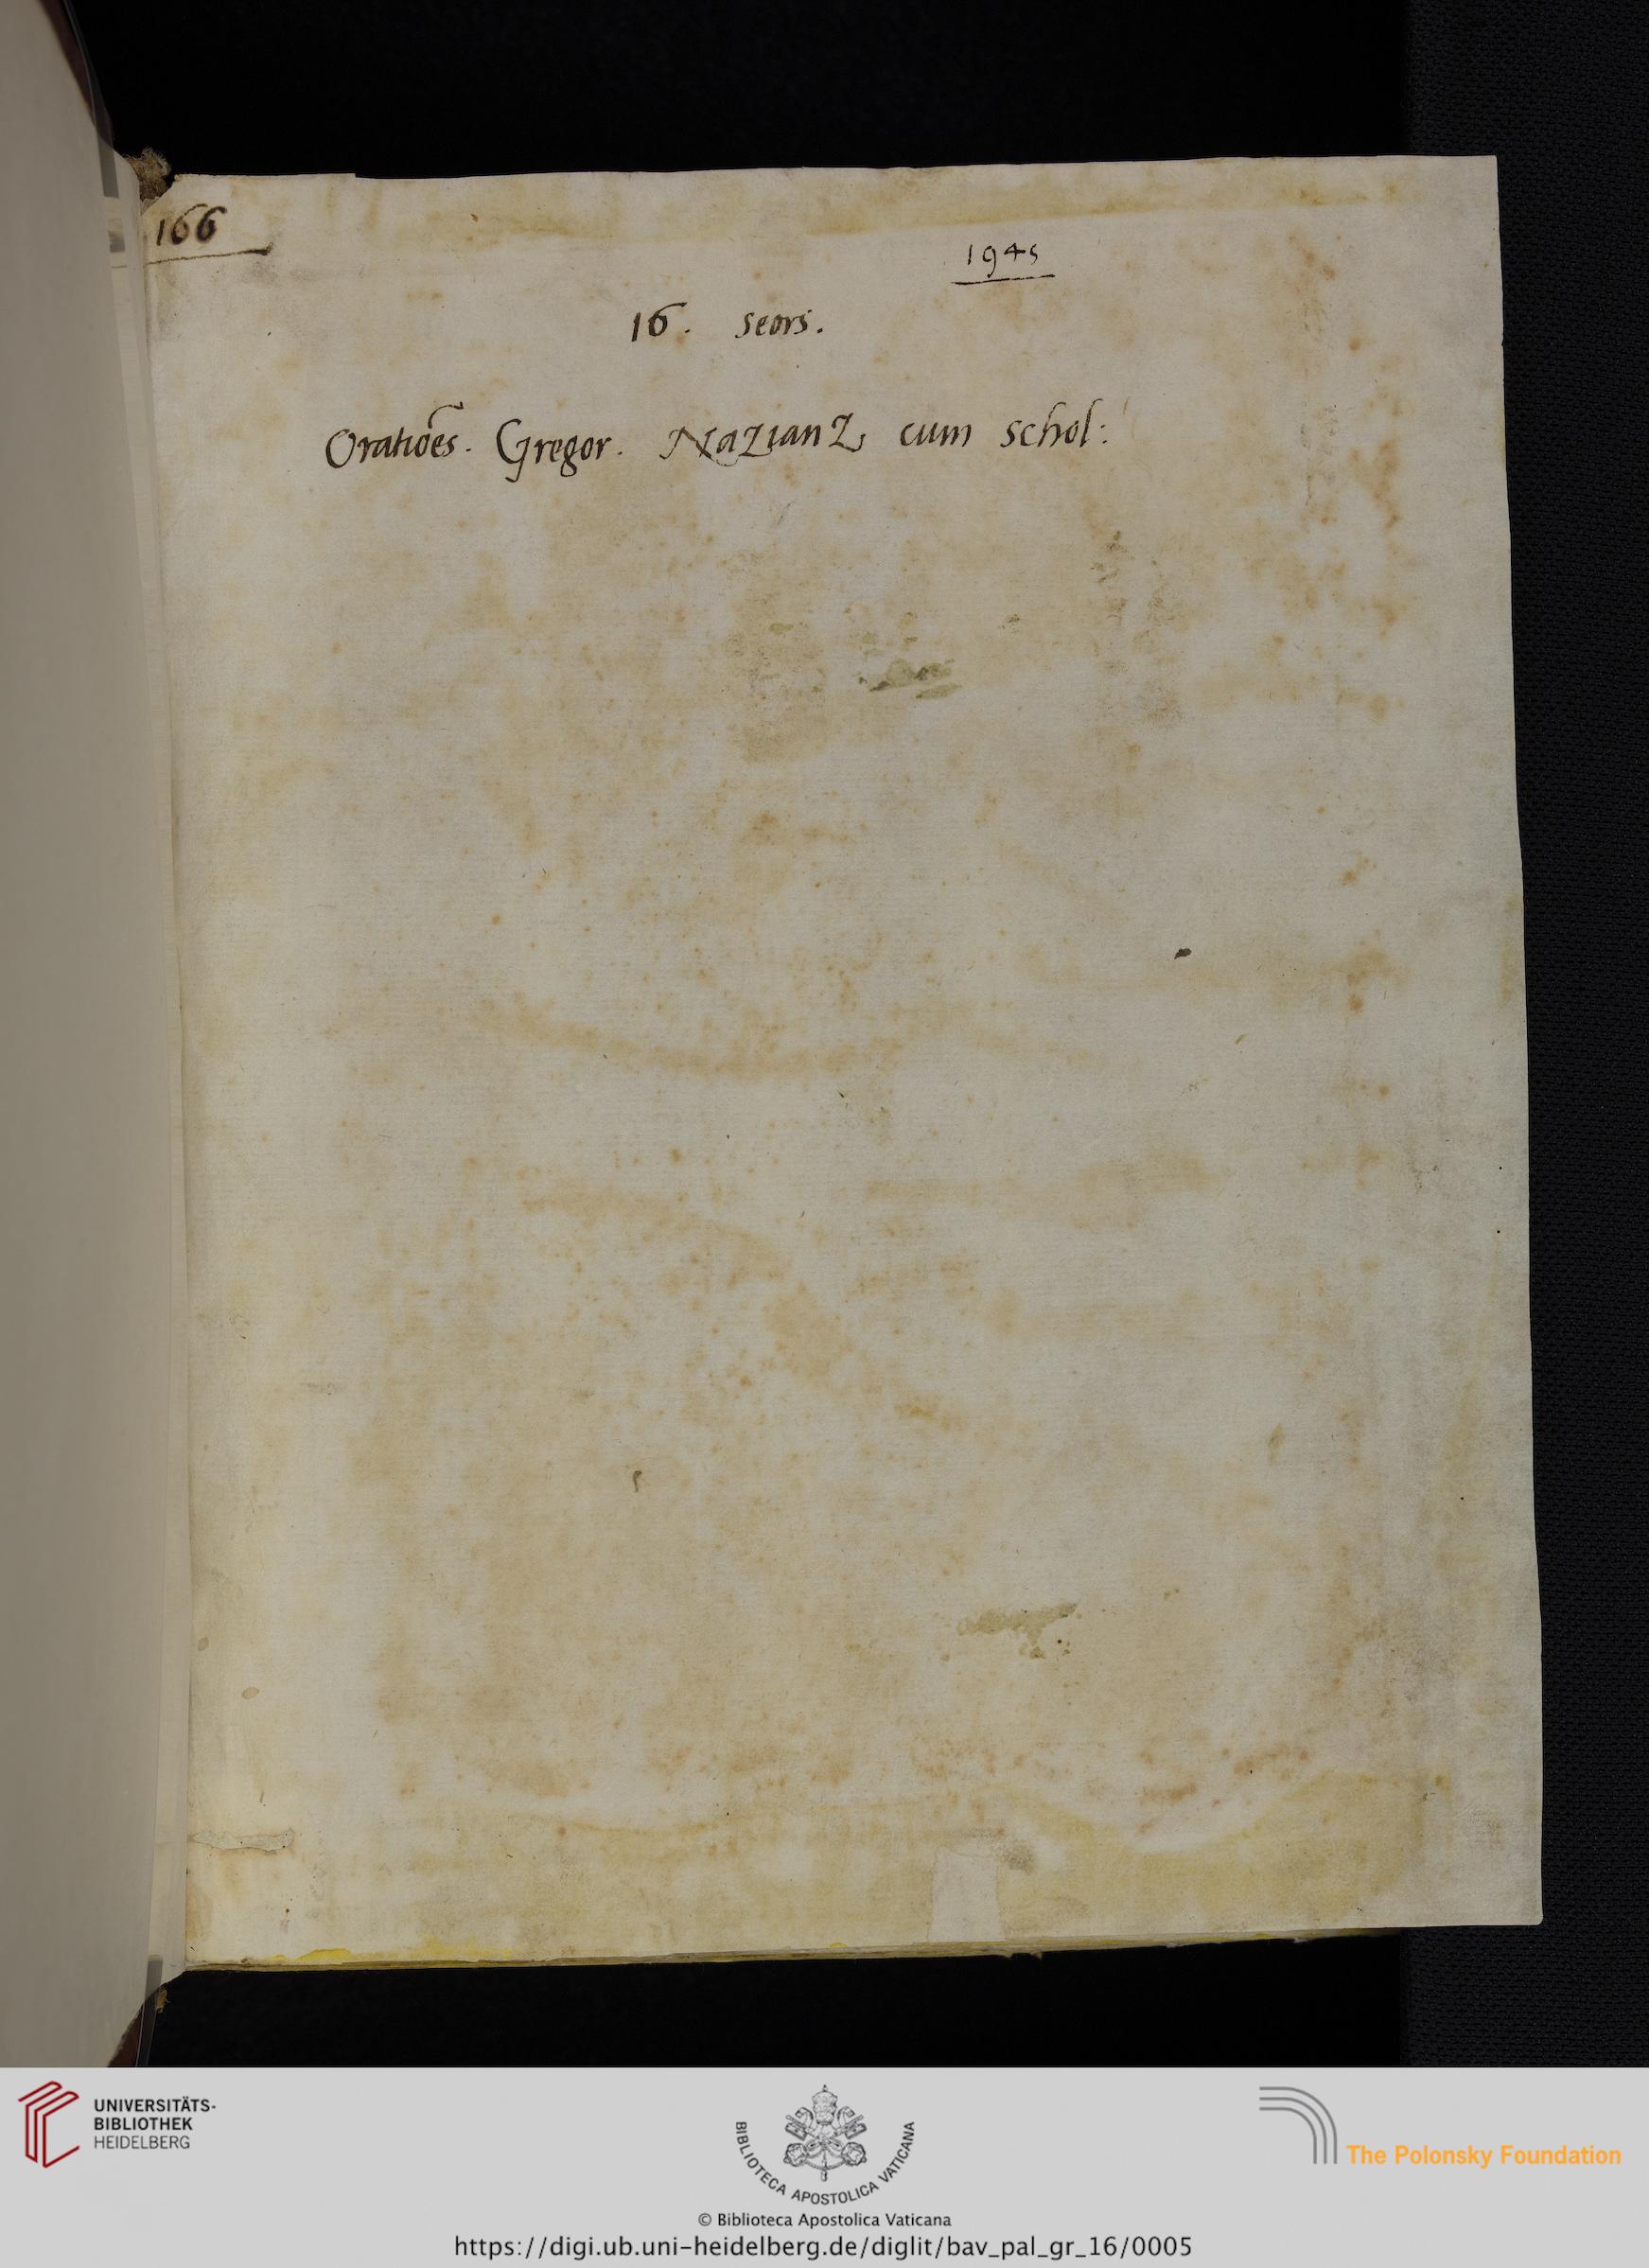 166
1945
16. seors.
Oratiões. Gregor. NaZianZ, cum schol:
UNIVERSITÄTS-
BIBLIOTHEK
HEIDELBERG
BIBLIOTECA APOSTOLICA VATICANA
The Polonsky Foundation
© Biblioteca Apostolica Vaticana
https://digi.ub.uni-heidelberg.de/diglit/bav_pal_gr_16/0005